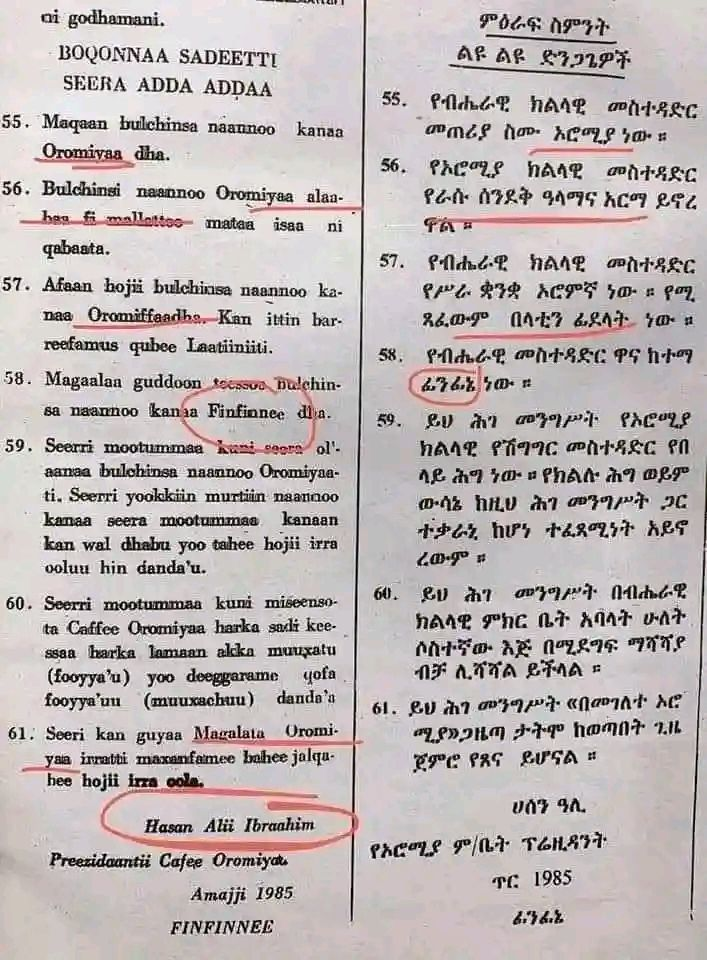 ni godhamani.
BOQONNAA SADEETTI
SEERA ADDA ADDAA
55. Maqaan bulchinsa naannoo kanaa
Oromiyaa dha.
56. Bulchinsi naannoo Oromiyaa alaa-
baa fi mallattoo mataa isaa ni
qabaata.
57. Afaan hojii bulchinsa naannoo ka-
naa Oromiffaadha. Kan ittin bar-
reefamus qubee Laatiiniiti.
58. Magaalaa guddoon teessoo bulchin-
sa naannoo kanaa Finfinnee dha.
59. Seerri mootummaa kuni seera ol'-
aanaa bulchinsa naannoo Oromiyaa-
ti. Seerri yookkiin murtiin naannoo
kanaa seera mootummaa kanaan
kan wal dhabu yoo tahee hojii irra
ooluu hin danda'u.
60. Seerri mootummaa kuni miseenso-
ta Caffee Oromiyaa harka sadi kee-
ssaa harka lamaan akka muuxatu
(fooyya'u) yoo deeggarame qofa
fooyya'uu (muuxachuu) danda'a
61. Seeri kan guyaa Magalata Oromi-
yaa irratti maxanfamee bahee jalqa-
bee hojii irra oola.
Hasan Alii Ibraahim
Preezidaantii Cafee Oromiyaa
Amajji 1985
FINFINNEE
ምዕራፍ ስምንት
ልዩ ልዩ ድንጋጌዎች
55. የብሔራዊ ክልላዊ መስተዳድር
መጠሪያ ስሙ ኦሮሚያ ነው ።
56. የኦሮሚያ ክልላዊ መስተዳድር
የራሱ ሰንደቅ ዓላማና አርማ ይኖረ
ዋል ።
57. የብሔራዊ ክልላዊ መስተዳድር
የሥራ ቋንቋ ኦሮምኛ ነው ። የሚ
ጻፈውም በላቲን ፊደላት ነው ።
58. የብሔራዊ መስተዳድር ዋና ከተማ
ፊንፊኔ ነው ።
59. ይህ ሕገ መንግሥት የኦሮሚያ
ክልላዊ የሽግግር መስተዳድር የበ
ላይ ሕግ ነው ። የክልሉ ሕግ ወይም
ውሳኔ ከዚህ ሕገ መንግሥት ጋር
ተቃራኒ ከሆነ ተፈጻሚነት አይኖ
ረውም ።
60. ይህ ሕገ መንግሥት በብሔራዊ
ክልላዊ ምክር ቤት አባላት ሁለት
ሶስተኛው እጅ በሚደግፍ ማሻሻያ
ብቻ ሊሻሻል ይችላል ።
61. ይህ ሕገ መንግሥት «በመገለተ ኦሮ
ሚያ»ጋዜጣ ታትሞ ከወጣበት ጊዜ
ጀምሮ የጸና ይሆናል ።
ሀሰን ዓሊ
የኦሮሚያ ም/ቤት ፕሬዚዳንት
ጥር 1985
ፊንፊኔ